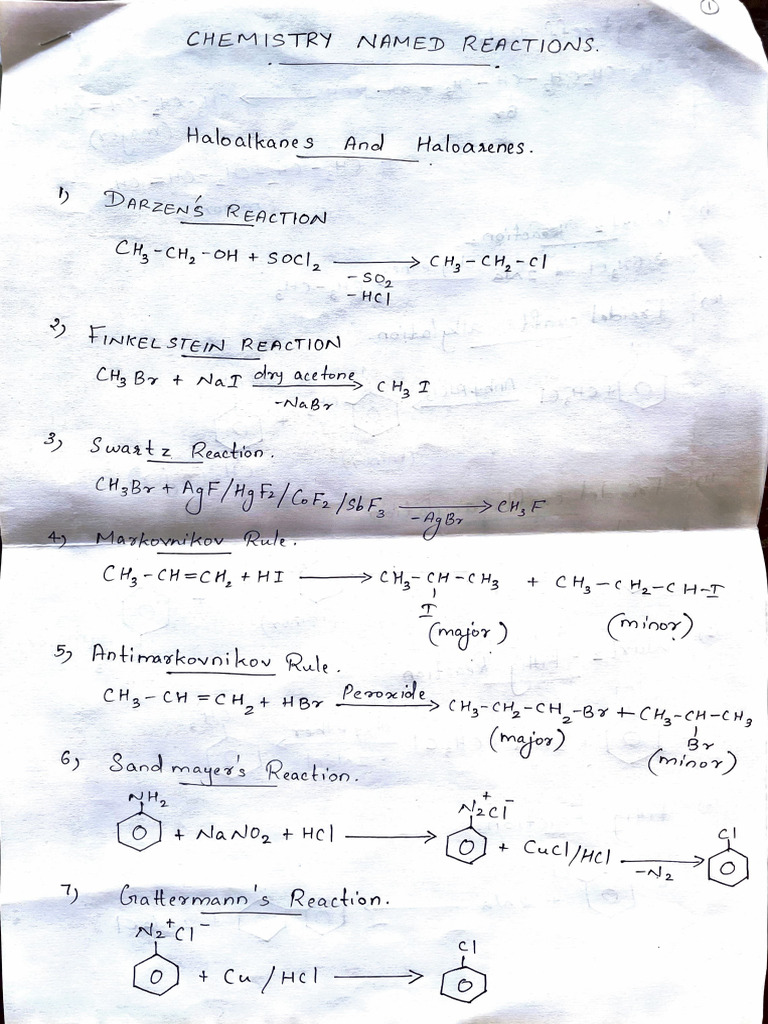 1
CHEMISTRY NAMED REACTIONS.
Haloalkanes And Haloarenes.
1) DARZEN'S REACTION
CH₃-CH₂-OH + SOCl₂ → CH₃-CH₂-Cl
-SO₂
-HCl
2) FINKELSTEIN REACTION
CH₃Br + NaI dry acetone → CH₃I
-NaBr
3) Swartz Reaction.
CH₃Br + AgF/HgF₂/CoF₂/SbF₃ → CH₃F
-AgBr
4) Markovnikov Rule.
CH₃-CH=CH₂ + HI → CH₃-CH-CH₃ + CH₃-CH₂-CH-I
I
(major) (minor)
5) Antimarkovnikov Rule.
CH₃-CH=CH₂ + HBr Peroxide → CH₃-CH₂-CH₂-Br + CH₃-CH-CH₃
Br
(major) (minor)
6) Sandmayer's Reaction.
NH₂ N₂⁺Cl⁻ Cl
+ NaNO₂ + HCl → + CuCl/HCl →
-N₂
7) Gattermann's Reaction.
N₂⁺Cl⁻ Cl
+ Cu/HCl →